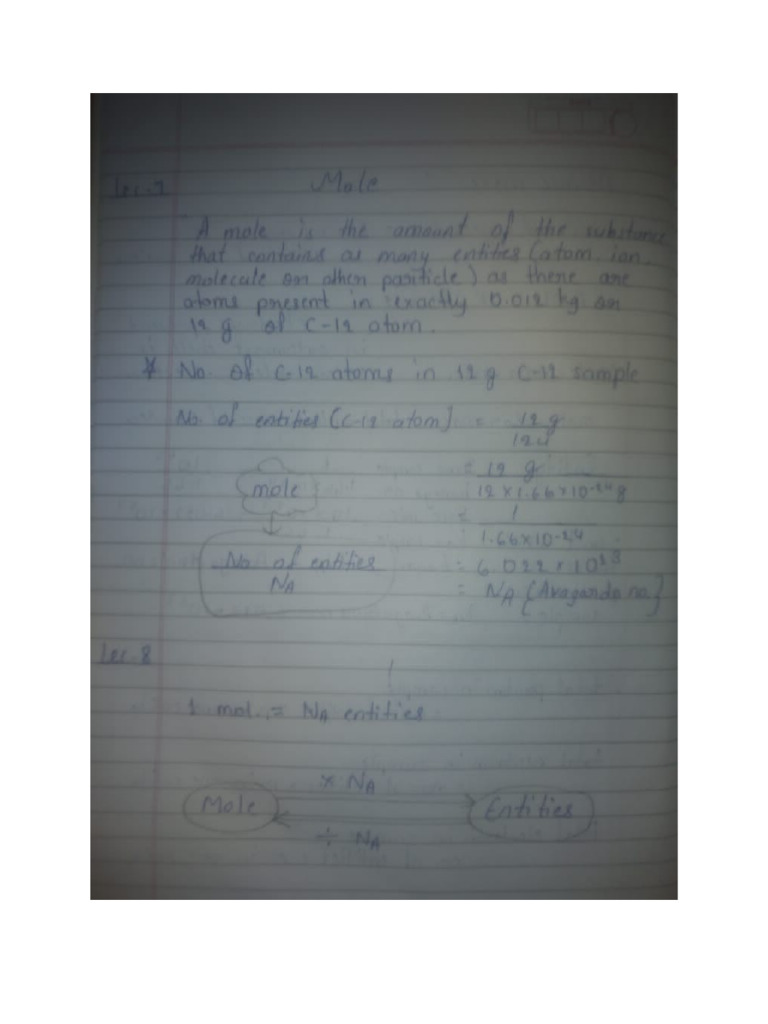 Lec-7
Mole
A mole is the amount of the substance
that contains as many entities (atom, ion,
molecule or other pariticle) as there are
atoms present in exactly 0.012 kg or
12 g of C-12 atom.
* No. of C-12 atoms in 12 g C-12 sample
No. of entities (C-12 atom) = 12 g
12 u
= 12 g
12 × 1.66 × 10-24 g
mole
= 1
1.66×10-24
No. of entities
NA
= 6.022 × 1023
= NA (Avagardo no.)
Lec-8
1 mol. = NA entities
× NA
Mole
Entities
÷ NA